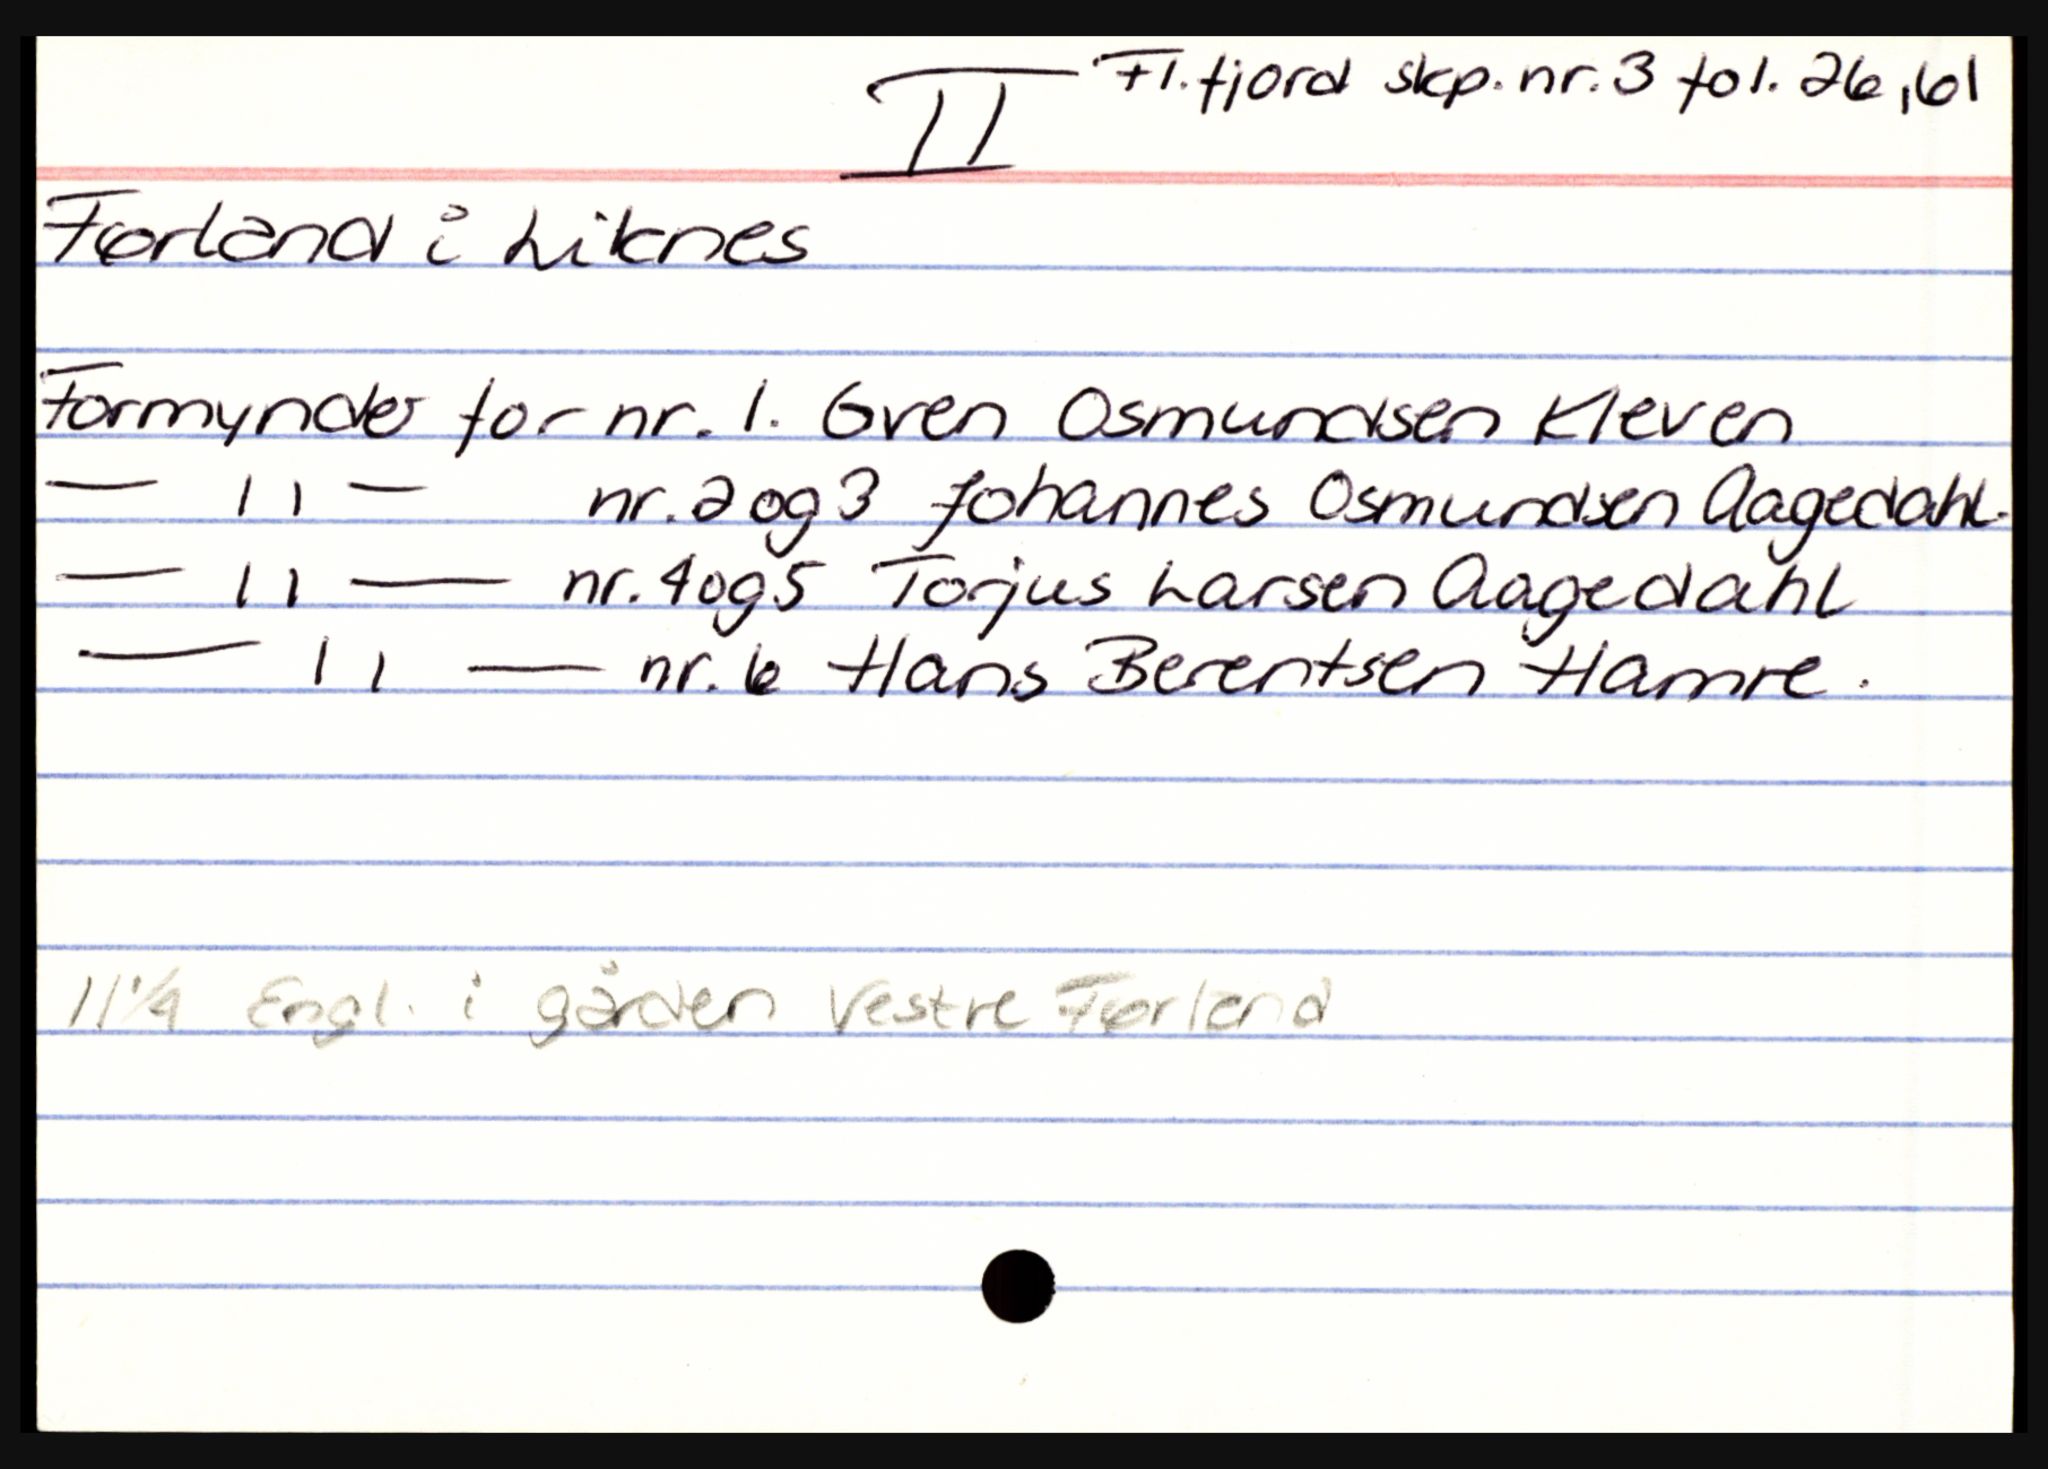 II Fl.fjord skp. nr. 3 fol. 26, 61
Førland i Liknes
Formynder for nr. 1. Gven Osmundsen Kleven
— 11 — nr. 2 og 3 Johannes Osmundsen Aagedahl.
— 11 — nr. 4 og 5 Torjus Larsen Aagedahl
— 11 — nr. 6 Hans Berentsen Hamre.
11 1/4 Engl. i gården Vestre Førland